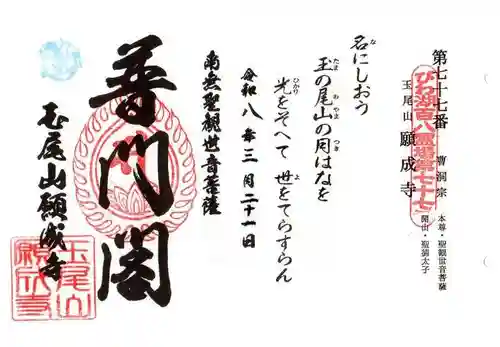 第七十七番
曹洞宗
本尊・聖観世音菩薩
開山・聖徳太子
びわ湖百八霊場第七十七
玉尾山
願成寺
名にしおう
な
玉の尾山の月はなを
たま
おやま
つき
光をそへて 世をてらすらん
ひかり
よ
令和八年三月二十一日
南無聖観世音菩薩
普門閣
玉尾山願成寺
玉尾山
願成寺